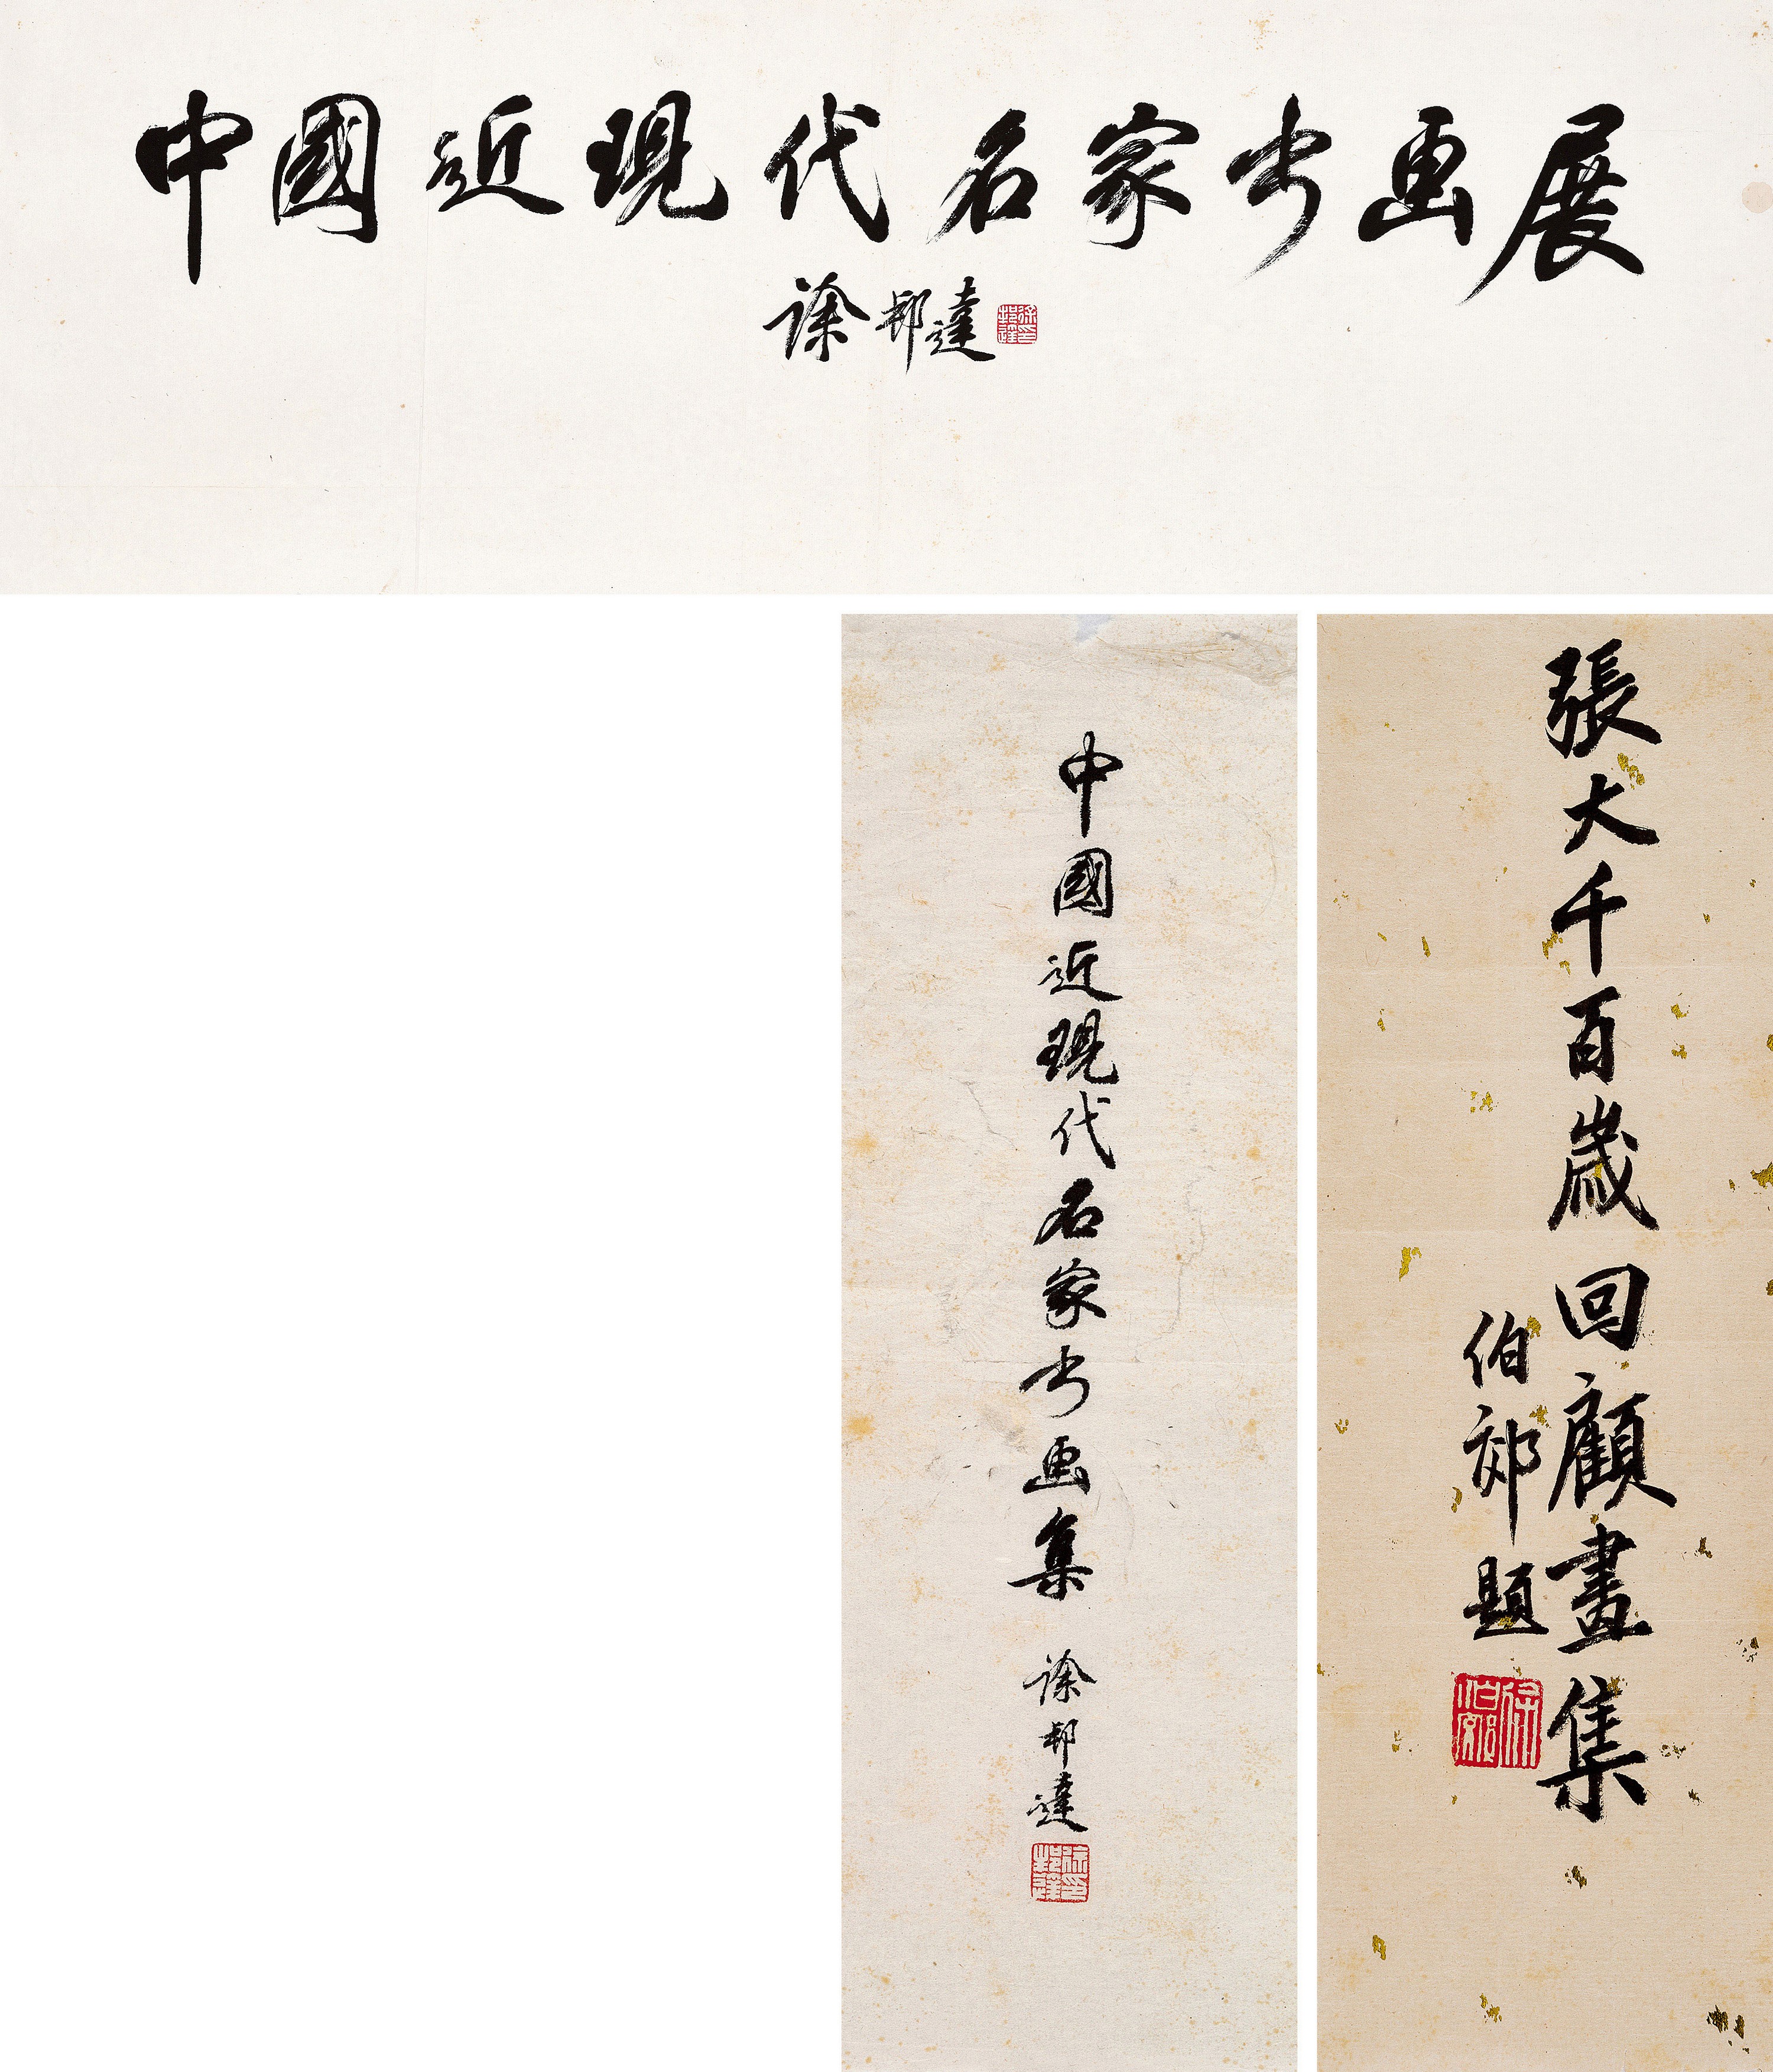 中國近現代名家书画展
徐邦達
徐邦達印
張大千百歲回顧畫集
伯郊題
徐伯郊
中國近現代名家书画集
徐邦達
徐邦達印